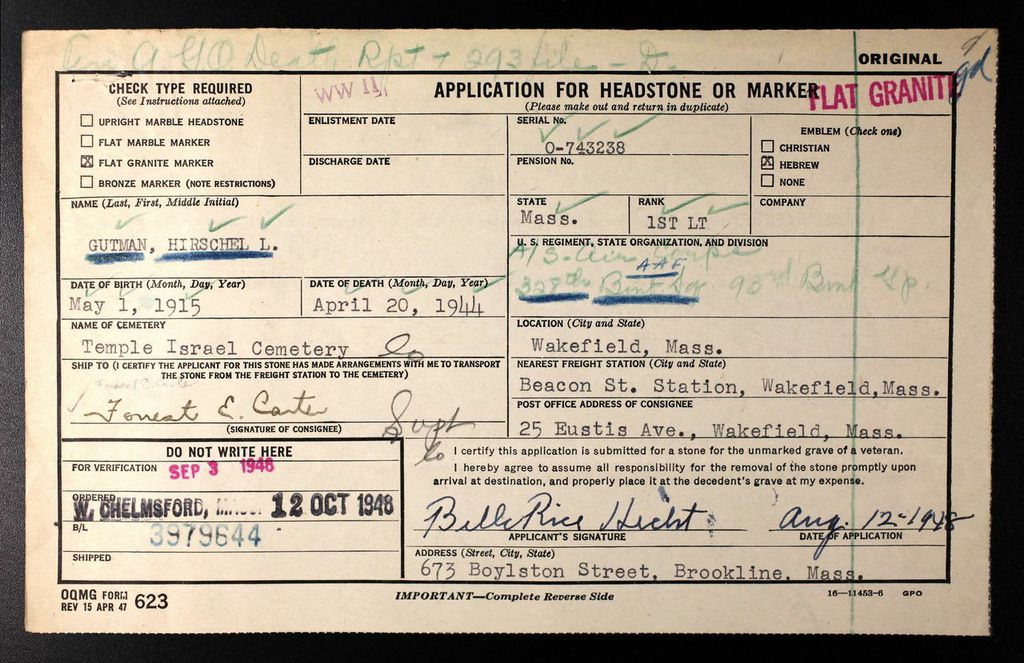 A.G.O. Death Rpt + 293 file - D.
ORIGINAL
CHECK TYPE REQUIRED
(See Instructions attached)
UPRIGHT MARBLE HEADSTONE
FLAT MARBLE MARKER
☒ FLAT GRANITE MARKER
BRONZE MARKER (NOTE RESTRICTIONS)
WW II
APPLICATION FOR HEADSTONE OR MARKER
(Please make out and return in duplicate)
FLAT GRANITE
ENLISTMENT DATE
DISCHARGE DATE
SERIAL No.
O-743238
PENSION No.
EMBLEM (Check one)
CHRISTIAN
☒ HEBREW
NONE
NAME (Last, First, Middle Initial)
GUTMAN, HIRSCHEL L.
STATE
Mass.
RANK
1ST LT
COMPANY
U. S. REGIMENT, STATE ORGANIZATION, AND DIVISION
A/S. Air Corps
AAF
328th Bmb Sq 93rd Bmb Gp.
DATE OF BIRTH (Month, Day, Year)
May 1, 1915
DATE OF DEATH (Month, Day, Year)
April 20, 1944
NAME OF CEMETERY
Temple Israel Cemetery
LOCATION (City and State)
Wakefield, Mass.
SHIP TO (I CERTIFY THE APPLICANT FOR THIS STONE HAS MADE ARRANGEMENTS WITH ME TO TRANSPORT
THE STONE FROM THE FREIGHT STATION TO THE CEMETERY)
Forrest E. Carter
Forrest E. Carter
Supt
(SIGNATURE OF CONSIGNEE)
NEAREST FREIGHT STATION (City and State)
Beacon St. Station, Wakefield, Mass.
POST OFFICE ADDRESS OF CONSIGNEE
25 Eustis Ave., Wakefield, Mass.
DO NOT WRITE HERE
FOR VERIFICATION
SEP 3 1948
ORDERED
W. CHELMSFORD, MASS. 12 OCT 1948
B/L
3979644
SHIPPED
I certify this application is submitted for a stone for the unmarked grave of a veteran.
I hereby agree to assume all responsibility for the removal of the stone promptly upon
arrival at destination, and properly place it at the decedent's grave at my expense.
Belle Rice Hecht Aug. 12-1948
APPLICANT'S SIGNATURE
DATE OF APPLICATION
ADDRESS (Street, City, State)
673 Boylston Street, Brookline, Mass.
OQMG FORM
REV 15 APR 47 623
IMPORTANT—Complete Reverse Side
16—11453-6 GPO